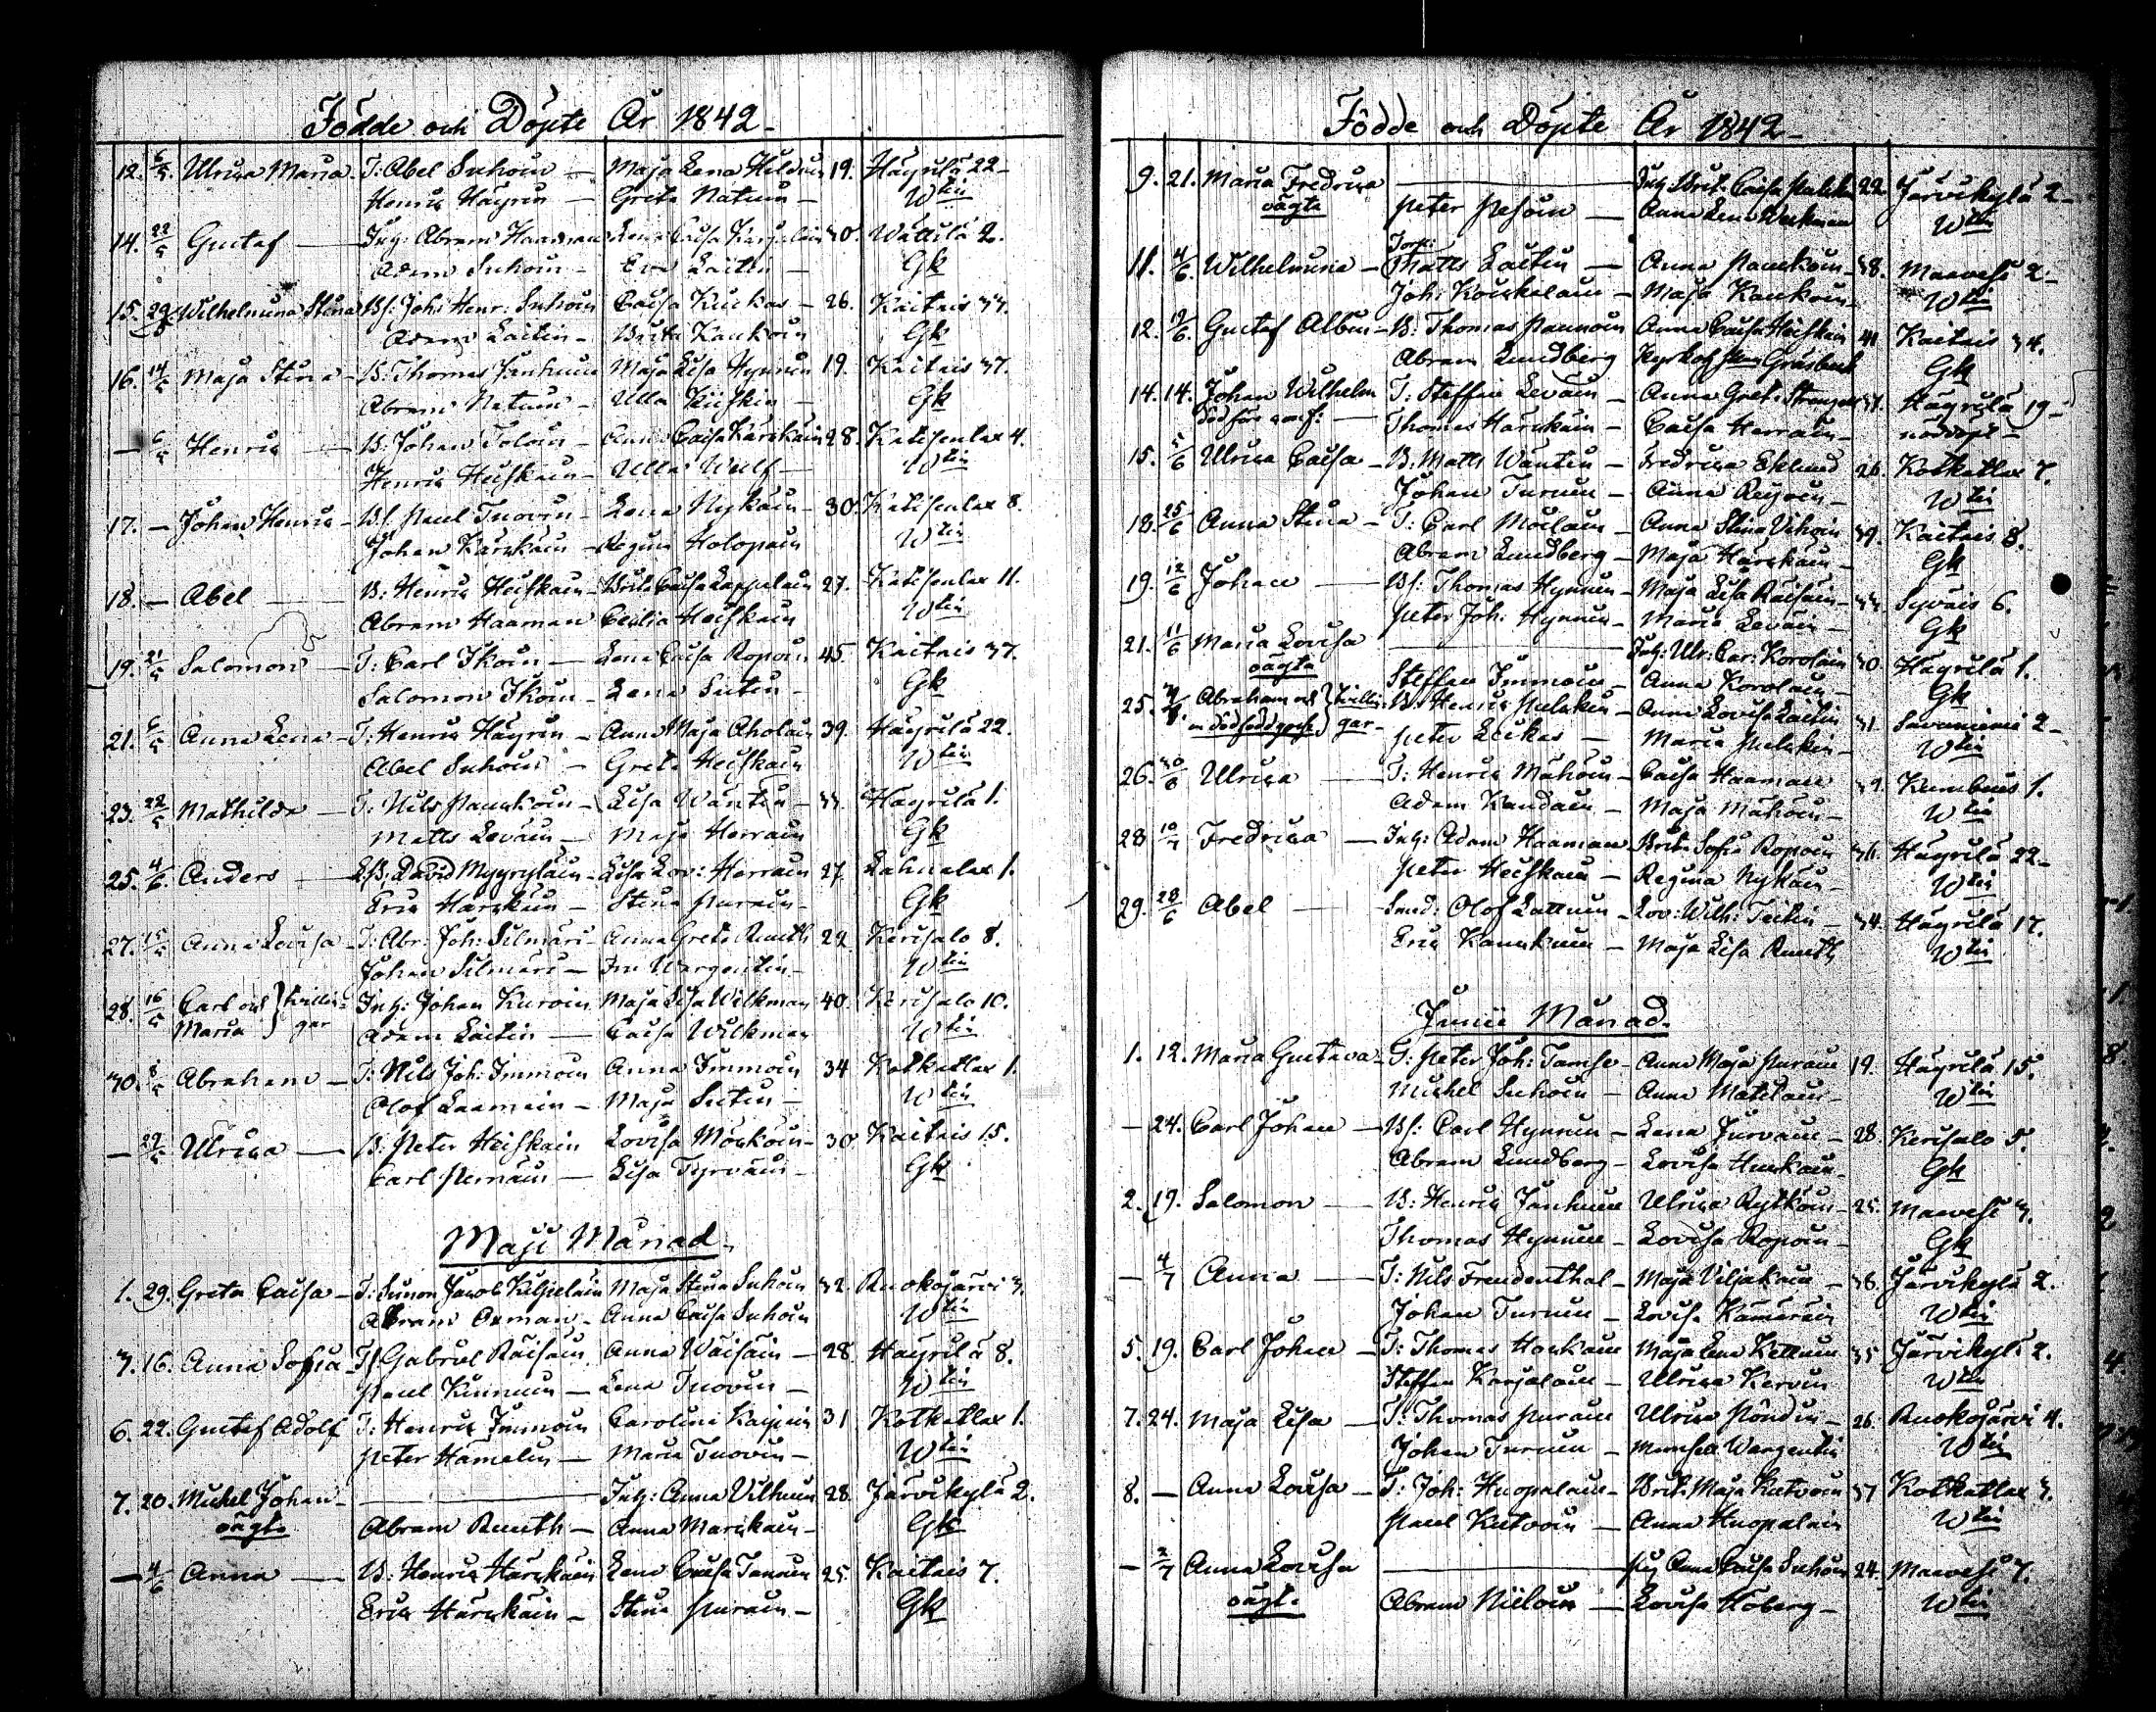 Födde och Döpte År 1842
12. 5/5. Ulrica Maria T: Abel Suhoin Maja Lena Hilduin 19. Häyrilä 22
Henric Häyrin Greta Natuin Wtin
14. 22/5 Gustaf Inh: Abram Haaman Lena Caisa Karjalain 30. Wättilä 2.
Adam Suhoin Eva Laitin Gk
15. 29/5 Wilhelmina Stina Bs: Joh: Henr: Suhoin Caisa Kuckas 26. Kaitais 37.
Adam Laitin Brita Kaukoin Gk
16. 14/5 Maja Stina B: Thomas Janhuin Maja Lisa Hynnin 19. Kaitais 37.
Abram Natuin Ulla Kiiskin Gk
— 5/5 Henric B: Johan Toloin Anna Caisa Kärckäin 28. Katisenlax 4.
Henric Heiskain Ulla Wulf Wtin
17. — Johan Henric Bs. Paul Tuovin Lena Nykäin 30. Katisenlax 8.
Johan Kärckäin Regina Holopain Wtin
18. — Abel B: Henric Heiskain Brit. Caisa Lappalain 27. Katisenlax 11.
Abram Haaman Cecilia Heiskain Wtin
19. 21/5 Salomon T: Carl Ikoin Lena Caisa Ropoin 45. Kaitais 37.
Salomon Ikoin Lena Sutin Gk
21. 5/5 Anna Lena T: Henric Häyrin Anna Maja Aholain 39. Häyrilä 22.
Abel Suhoin Greta Heiskain Wtin
23. 22/5 Mathilda T: Nils Pauckoin Lisa Wäntin 33. Häyrilä 1.
Matts Leväin Maja Herrain Gk
25. 4/6. Anders LB: David Mygryläin Lisa Lov: Herrain 27 Lahnalax 1.
Eric Härckäin Stina Purain Gk
27. 15/5 Anna Lovisa T: Abr: Joh: Silmäri Anna Greta Ruuth 22 Kerisalo 8.
Johan Silmäri Fru Wargentin Wtin
28. 16/5 Carl och } tvillin- Inh: Johan Kurvin Maja Lisa Wilkman 40. Kerisalo 10.
Maria } gar Adam Laitin Caisa Wilkman Wtin
30. 8/5 Abraham T: Nils Joh: Immoin Anna Immoin 34 Kotkatlax 1.
Olof Laamain Maja Sutin Wtin
— 29/5 Ulrica B. Peter Heiskain Lovisa Möckoin 30 Kaitais 15.
Carl Pernäin Lisa Tyrväin Gk
Maji Månad.
1. 29. Greta Caisa T: Simon Jacob Kilpeläin Maja Stina Suhoin 32. Ruokojärvi 3.
Abram Oxman Anna Caisa Suhoin Wtin
3. 16. Anna Sofia T/ Gabriel Räisäin Anna Wäisäin 28 Häyrilä 8.
Paul Kinnuin Lena Tuovin Wtin
6. 22. Gustaf Adolf T: Henric Immoin Carolina Kaipiain 31 Kotkatlax 1.
Peter Hämälin Maria Tuovin Wtin
7. 20. Michel Johan Inh: Anna Vilhuin 28. Järvikylä 2.
oägt. Abram Ruuth Anna Marckain Gk
— 4/6 Anna B. Henric Härckäin Lena Caisa Tanuin 25. Kaitais 7.
Eric Härckäin Stina Purain Gk
Födde och Döpte År 1842
9. 21. Maria Fredrica Inh: Brit. Caisa Pulckin 22. Järvikylä 2
oägta Peter Pesoin Anna Lena Weckman Wtin
Torp:
11. 4/6. Wilhelmina Matts Laitin Anna Pauckoin 38. Maavesi 2
Joh: Kouckalain Maja Kaukoin Wtin
12. 19/6. Gustaf Albin B: Thomas Pannoin Anna Caisa Heiskain 41 Kaitais 34.
Abram Lundberg Kyrkoh: Gråsbeck Gk
14. 14. Johan Wilhelm T: Steffan Leväin Anna Gret. 37. Häyrilä 19
Thomas Härckäin Caisa Herrain nöddöpt
15. 5/6 Ulrica Caisa B. Matts Wäntin Fredrica Eklund 26. Kotkatlax 7.
Johan Turuin Anna Reijoin Wtin
18. 25/6 Anna Stina T: Carl Moilain Anna Stina Vihoin 39. Kaitais 8.
Abram Lundberg Maja Härckäin Gk
19. 12/6 Johan Bs: Thomas Hynnin Maja Lisa Räisäin 33. Syväis 6.
Peter Joh: Hynnin Maria Leväin Gk
21. 11/6 Maria Lovisa Inh: Ulr: Car: Korolain 30. Häyrilä 1.
oägta Steffan Immoin Anna Korolain Gk
25. Abraham och } tvillin- B. Henric Pulckin Anna Lovisa Laitin 31. Savuniemi 2
en dödfödd gosse } gar Peter Leikas Maria Pulckin Wtin
26. 30/6 Ulrica T: Henric Mähöin Caisa Haaman 39. Kumbuis 1.
Adam Kaudain Maja Mähöin Wtin
28 10/7 Fredrica Inh: Adam Haaman Brit. Sofia Ropoin 36. Häyrilä 22
Peter Heiskain Regina Nykäin Wtin
29. 28/6 Abel Smed: Olof Lattuin Lov: Wilh: Teitin 34. Häyrilä 17.
Eric Kauckuin Maja Lisa Ruuth Wtin
Junii Månad.
1. 12. Maria Gustava T: Peter Joh: Tamse Anna Maja Purain 19. Häyrilä 15.
Michel Suhoin Anna Matilain Wtin
— 24. Carl Johan Bs: Carl Hynnin Lena Jurvain 28. Kerisalo 5.
Abram Lundberg Lovisa Huckain Gk
2. 19. Salomon B: Henric Janhuin Ulrica Rytkoin 25. Maavesi 3.
Thomas Hynnin Lovisa Ropoin Gk
— 4/7 Anna T: Nils Freudenthal Maja Viljakain 38. Järvikylä 2.
Johan Turuin Lovisa Kämäräin Wtin
5. 19. Carl Johan T: Thomas Hackain Maja Lena Kettuin 35 Järvikylä 2.
Steffan Karjalain Ulrica Kervin Wtin
7. 24. Maja Lisa T: Thomas Purain Ulrica Pöndin 26. Ruokojärvi 4.
Johan Turuin Mamsell Wargentin Wtin
8. — Anna Lovisa T: Joh: Huopalain Brit. Maja Kutvoin 37 Kotkatlax 3.
Paul Kutvoin Anna Huopalain Wtin
— 2/7 Anna Lovisa Pig Anna Caisa Suhoin 24. Maavesi 7.
oägt. Abram Niiloin Lovisa Höberg Wtin